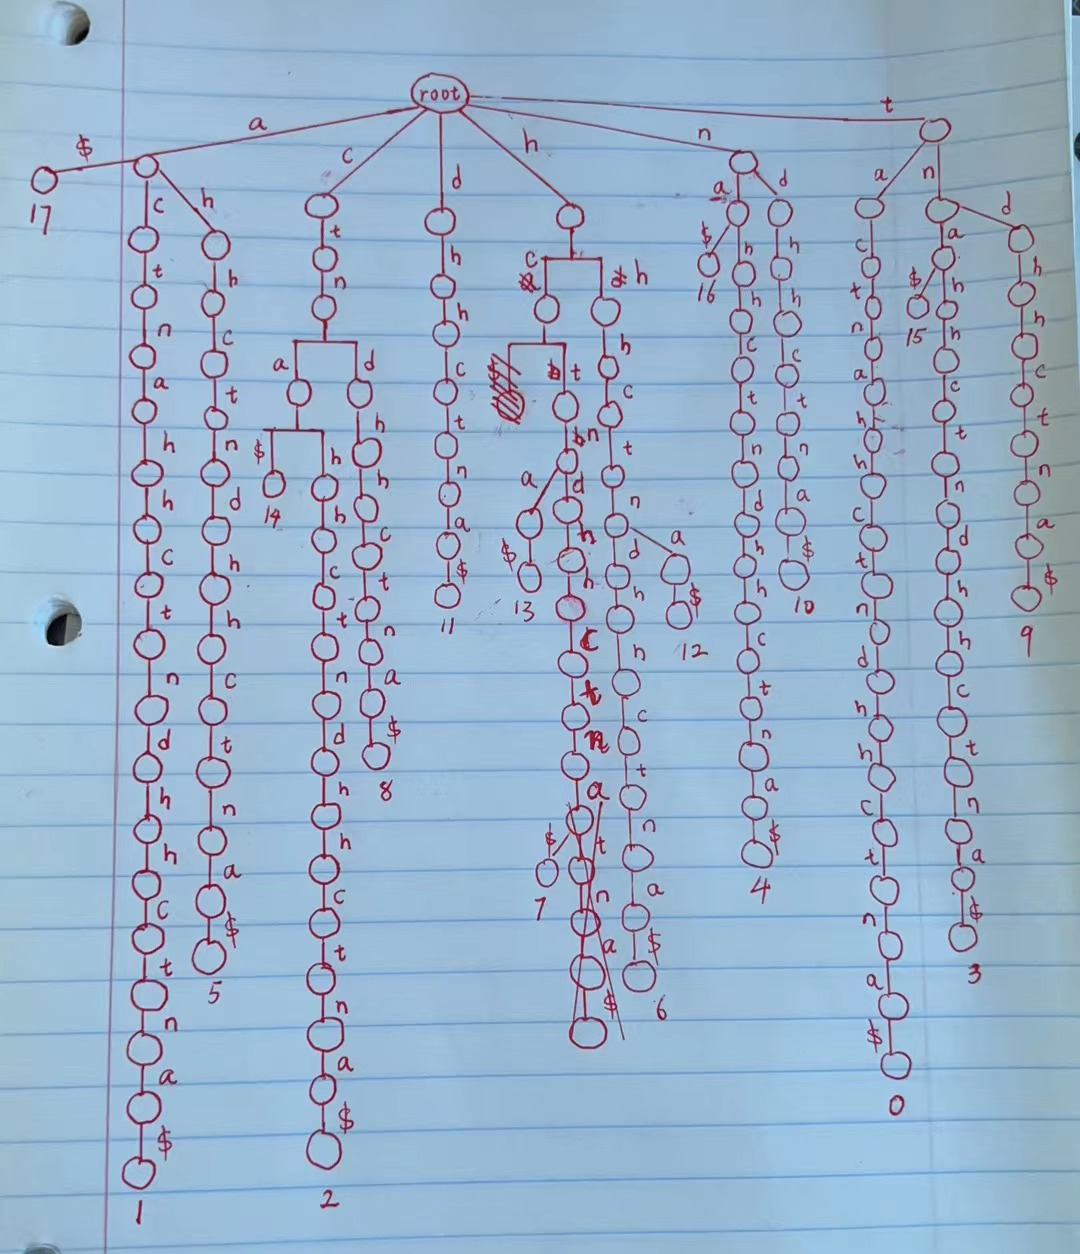 root
a
$
17
c t n a h h c t n d h h c t n a $
1
h h c t n d h h c t n a $
5
c t n
a
$
14
h h c t n d h h c t n a $
2
d h h c t n a $
8
d h h c t n a $
11
h
c t n
a $
13
d h h c t n a
$
7
t n a $
h h c t n
d h h c t n a $
6
a $
12
n
a
$
16
h h c t n d h h c t n a $
4
d h h c t n a $
10
t
a c t n a h h c t n d h h c t n a $
0
n
a
$
15
h h c t n d h h c t n a $
3
d h h c t n a $
9